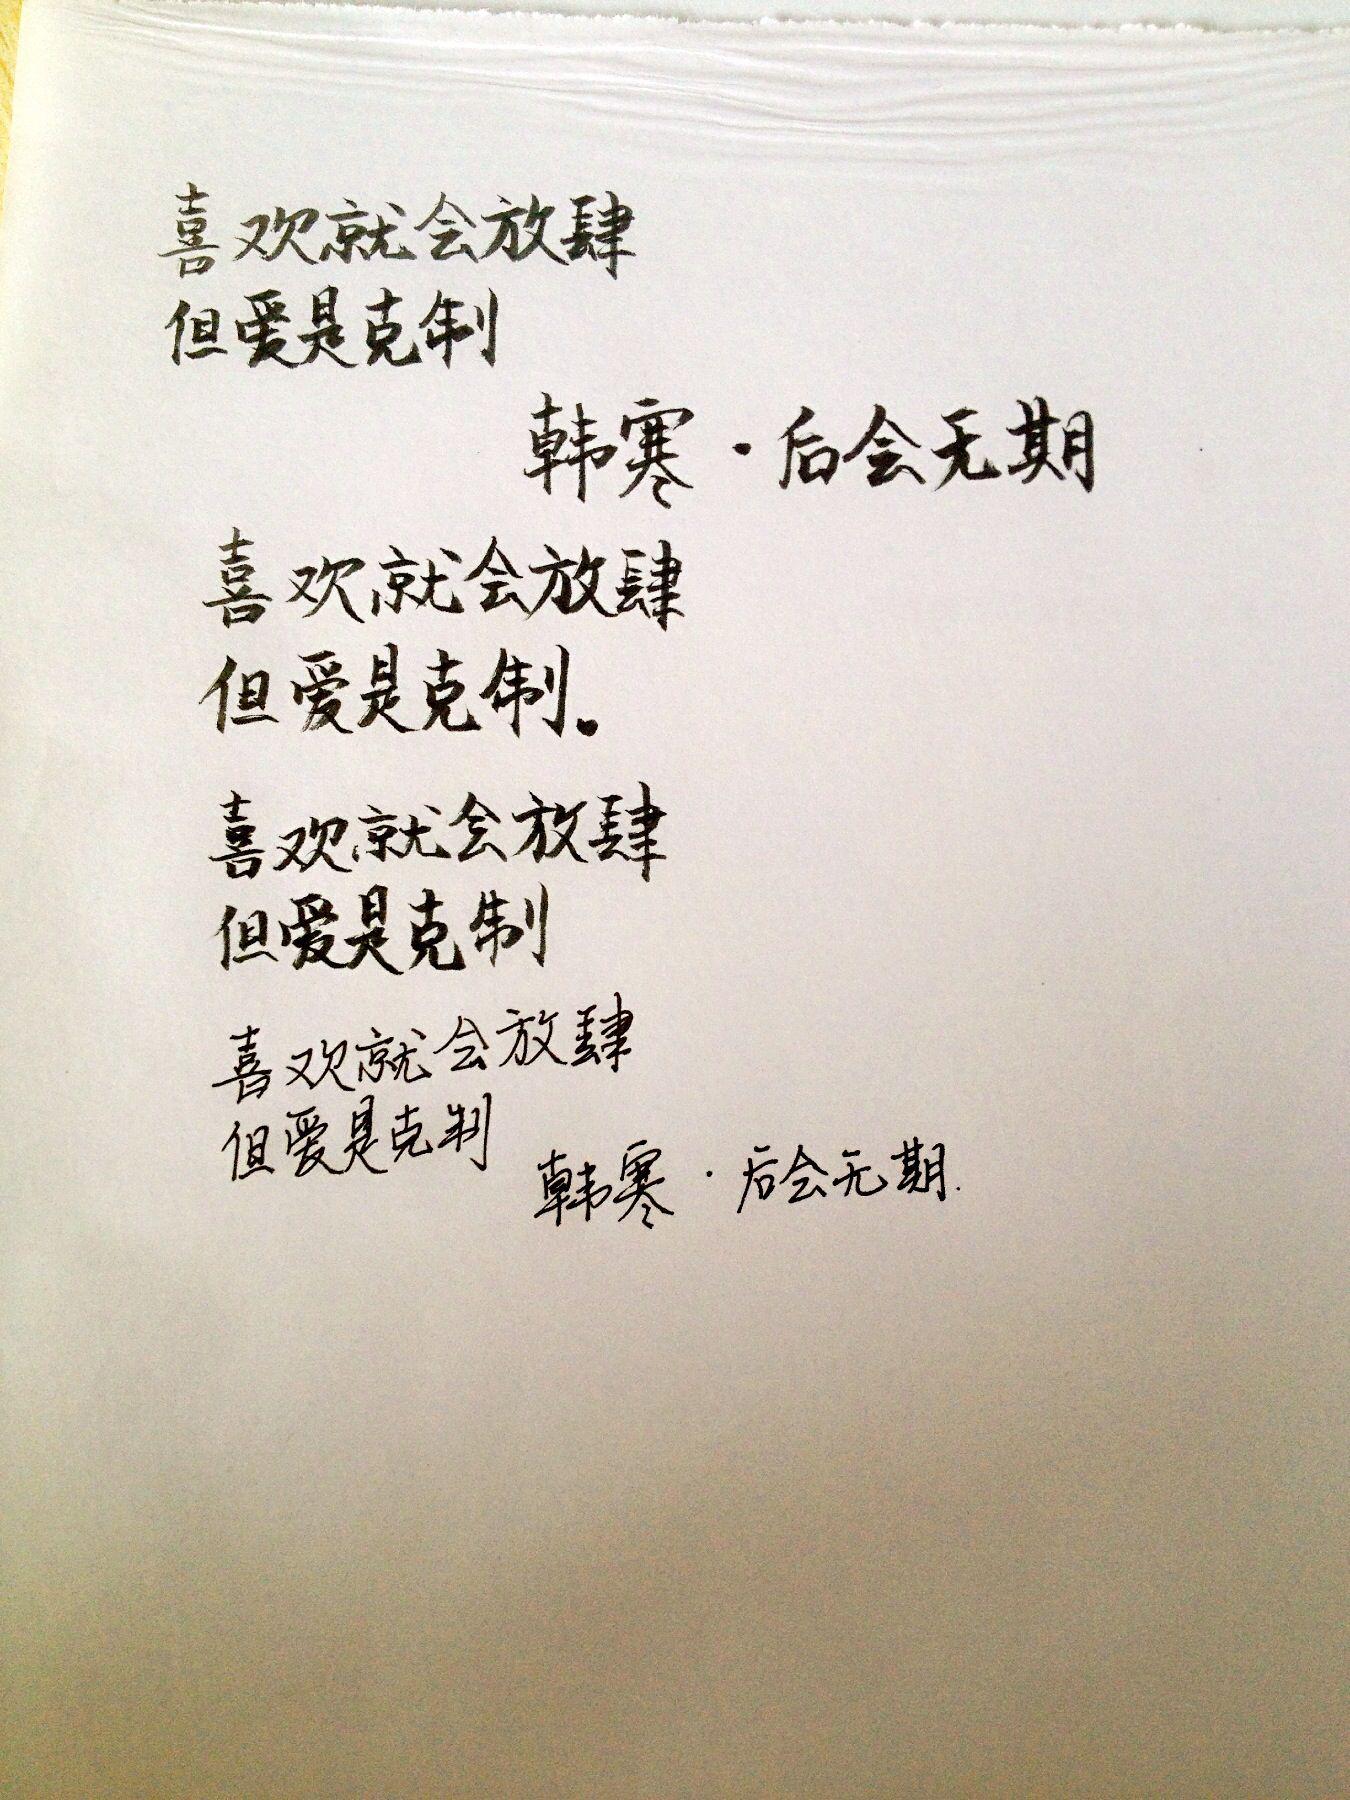 喜欢就会放肆
但爱是克制
韩寒·后会无期
喜欢就会放肆
但爱是克制。
喜欢就会放肆
但爱是克制
喜欢就会放肆
但爱是克制
韩寒·后会无期.